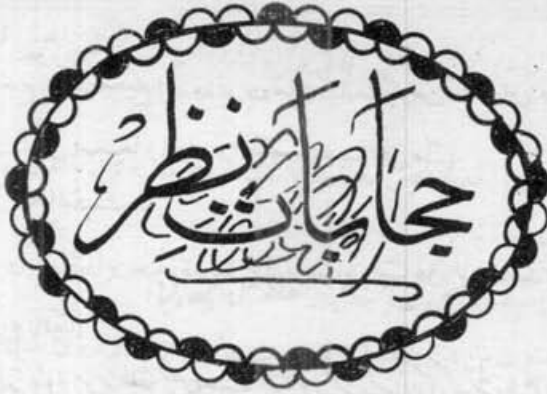 حجابات نظر